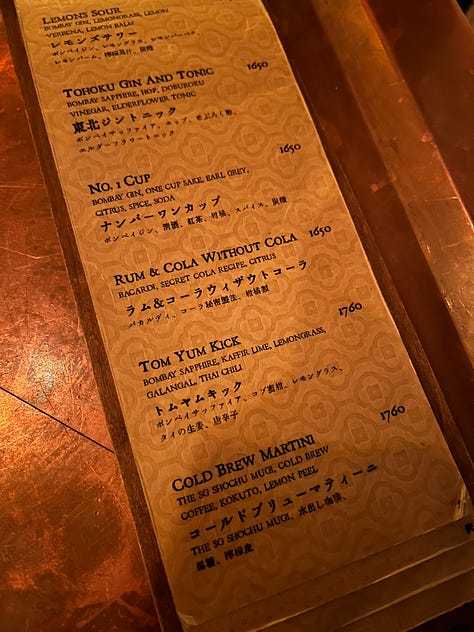 LEMONS SOUR
BOMBAY GIN, LEMONGRASS, LEMON
VERBENA, LEMON BALM
レモンズサワー
ボンベイジン、レモングラス、レモンバーベナ、
レモンバーム、檸檬果汁、炭酸
TOHOKU GIN AND TONIC 1650
BOMBAY SAPPHIRE, HOP, DOBUROKU
VINEGAR, ELDERFLOWER TONIC
東北ジントニック
ボンベイサッファイア、ホップ、どぶろく酢、
エルダーフラワートニック
NO. 1 CUP 1650
BOMBAY GIN, ONE CUP SAKE, EARL GREY,
CITRUS, SPICE, SODA
ナンバーワンカップ
ボンベイジン、清酒、紅茶、柑橘、スパイス、炭酸
RUM & COLA WITHOUT COLA 1650
BACARDI, SECRET COLA RECIPE, CITRUS
ラム&コーラウィザウトコーラ
バカルディ、コーラ秘密製法、柑橘類
TOM YUM KICK 1760
BOMBAY SAPPHIRE, KAFFIR LIME, LEMONGRASS,
GALANGAL, THAI CHILI
トムヤムキック
ボンベイサッファイア、コブ蜜柑、レモングラス、
タイの生姜、唐辛子
COLD BREW MARTINI 1760
THE SG SHOCHU MUGI, COLD BREW
COFFEE, KOKUTO, LEMON PEEL
コールドブリューマティーニ
THE SG SHOCHU MUGI、水出し珈琲、
黒糖、檸檬皮